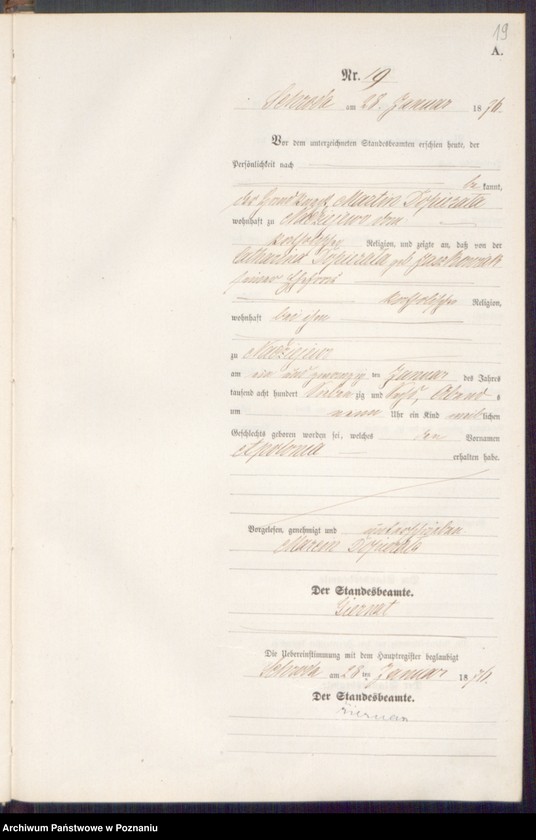 19
A.
Nr. 19
Schroda am 28. Januar 1876.
Vor dem unterzeichneten Standesbeamten erschien heute, der
Persönlichkeit nach
be kannt,
der Martin
wohnhaft zu
katholischer Religion, und zeigte an, daß von der
geb
seiner Ehefrau
katholischer Religion,
wohnhaft bei ihm
zu
am ein und zwanzig ten Januar des Jahres
tausend acht hundert sieben zig und sechs, Abend s
um neun Uhr ein Kind weiblichen
Geschlechts geboren worden sei, welches den Vornamen
Apolonia erhalten habe.
Vorgelesen, genehmigt und unterschrieben
Marcin
Der Standesbeamte.
Die Uebereinstimmung mit dem Hauptregister beglaubigt
Schroda am 28 ten Januar 1876.
Der Standesbeamte.
Archiwum Państwowe w Poznaniu